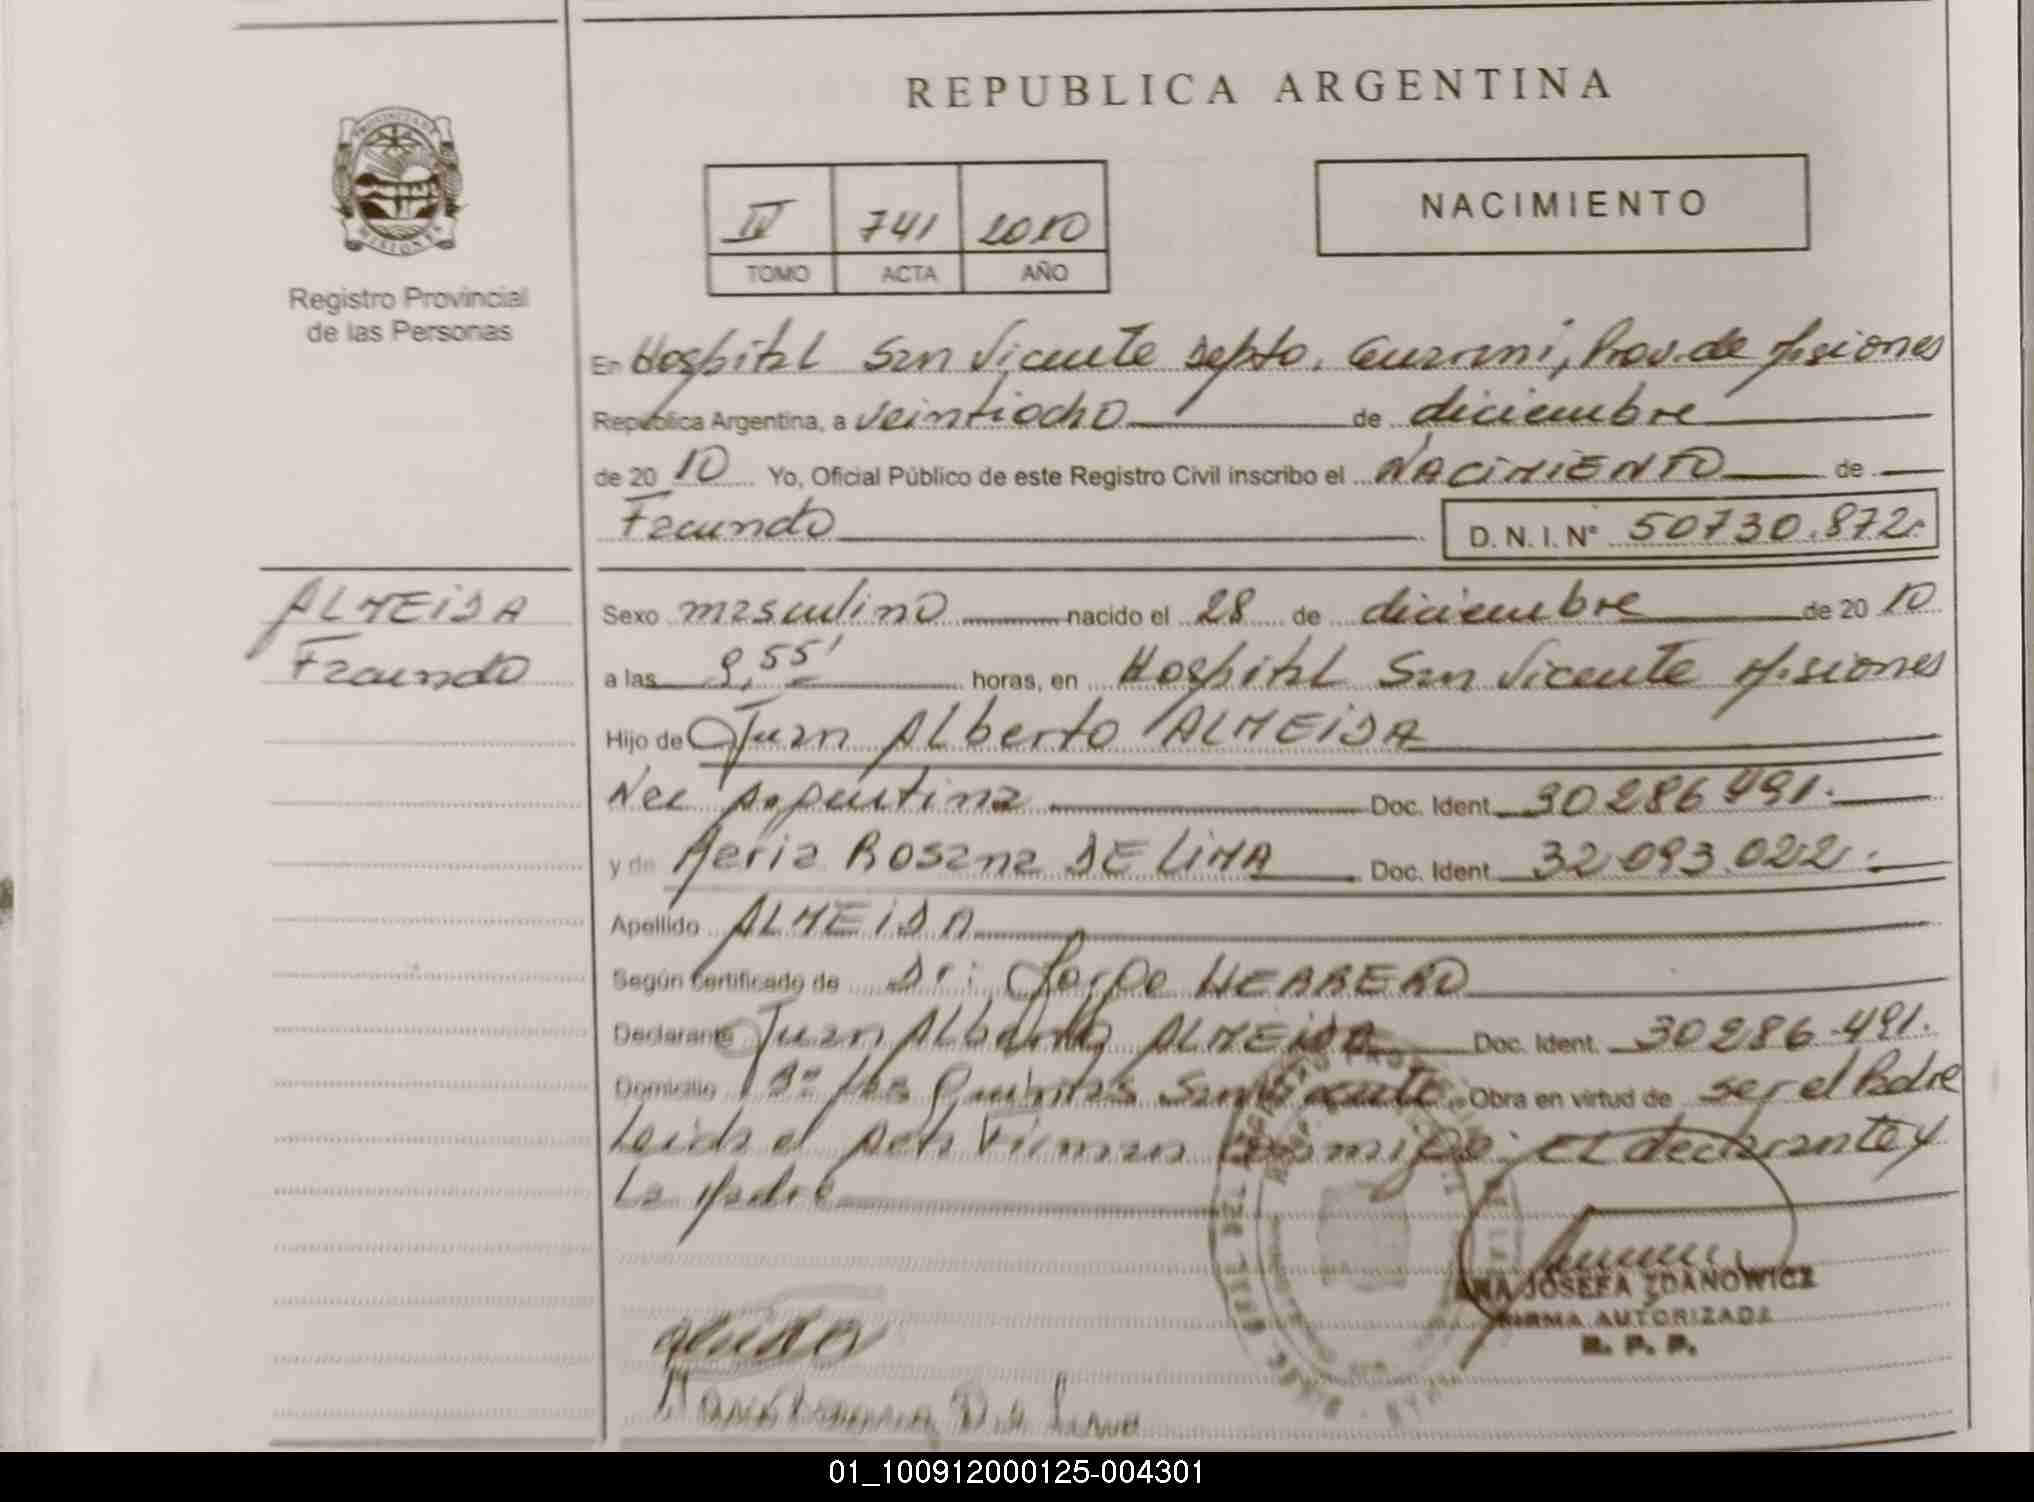 REPUBLICA ARGENTINA
PROVINCIA DE MISIONES
Registro Provincial
de las Personas
IV 741 2010
TOMO ACTA AÑO
NACIMIENTO
En Hospital San Vicente Depto. Guarani, Prov. de Misiones
Republica Argentina, a veintiocho de diciembre
de 20 10 Yo, Oficial Público de este Registro Civil inscribo el NACIMIENTO de
Facundo D. N. I. N° 50730.872.
ALMEIDA
Facundo
Sexo masculino nacido el 28 de diciembre de 20 10
a las 9,55' horas, en Hospital San Vicente Misiones
Hijo de Juan Alberto ALMEIDA
Nac Argentina Doc. Ident. 30286491.
y de Maria Rosana DE LIMA Doc. Ident. 32093.022.
Apellido ALMEIDA
Según certificado de Dr. Jorge HERRERO
Declarante Juan Alberto ALMEIDA Doc. Ident. 30286.491.
Domicilio Bº Las Quintas San Vicente Obra en virtud de ser el Padre
Leida el Acta Firman conmigo: El declarante y
La Madre
ANA JOSEFA ZDANOWICZ
FIRMA AUTORIZADA
R. P. P.
01_100912000125-004301